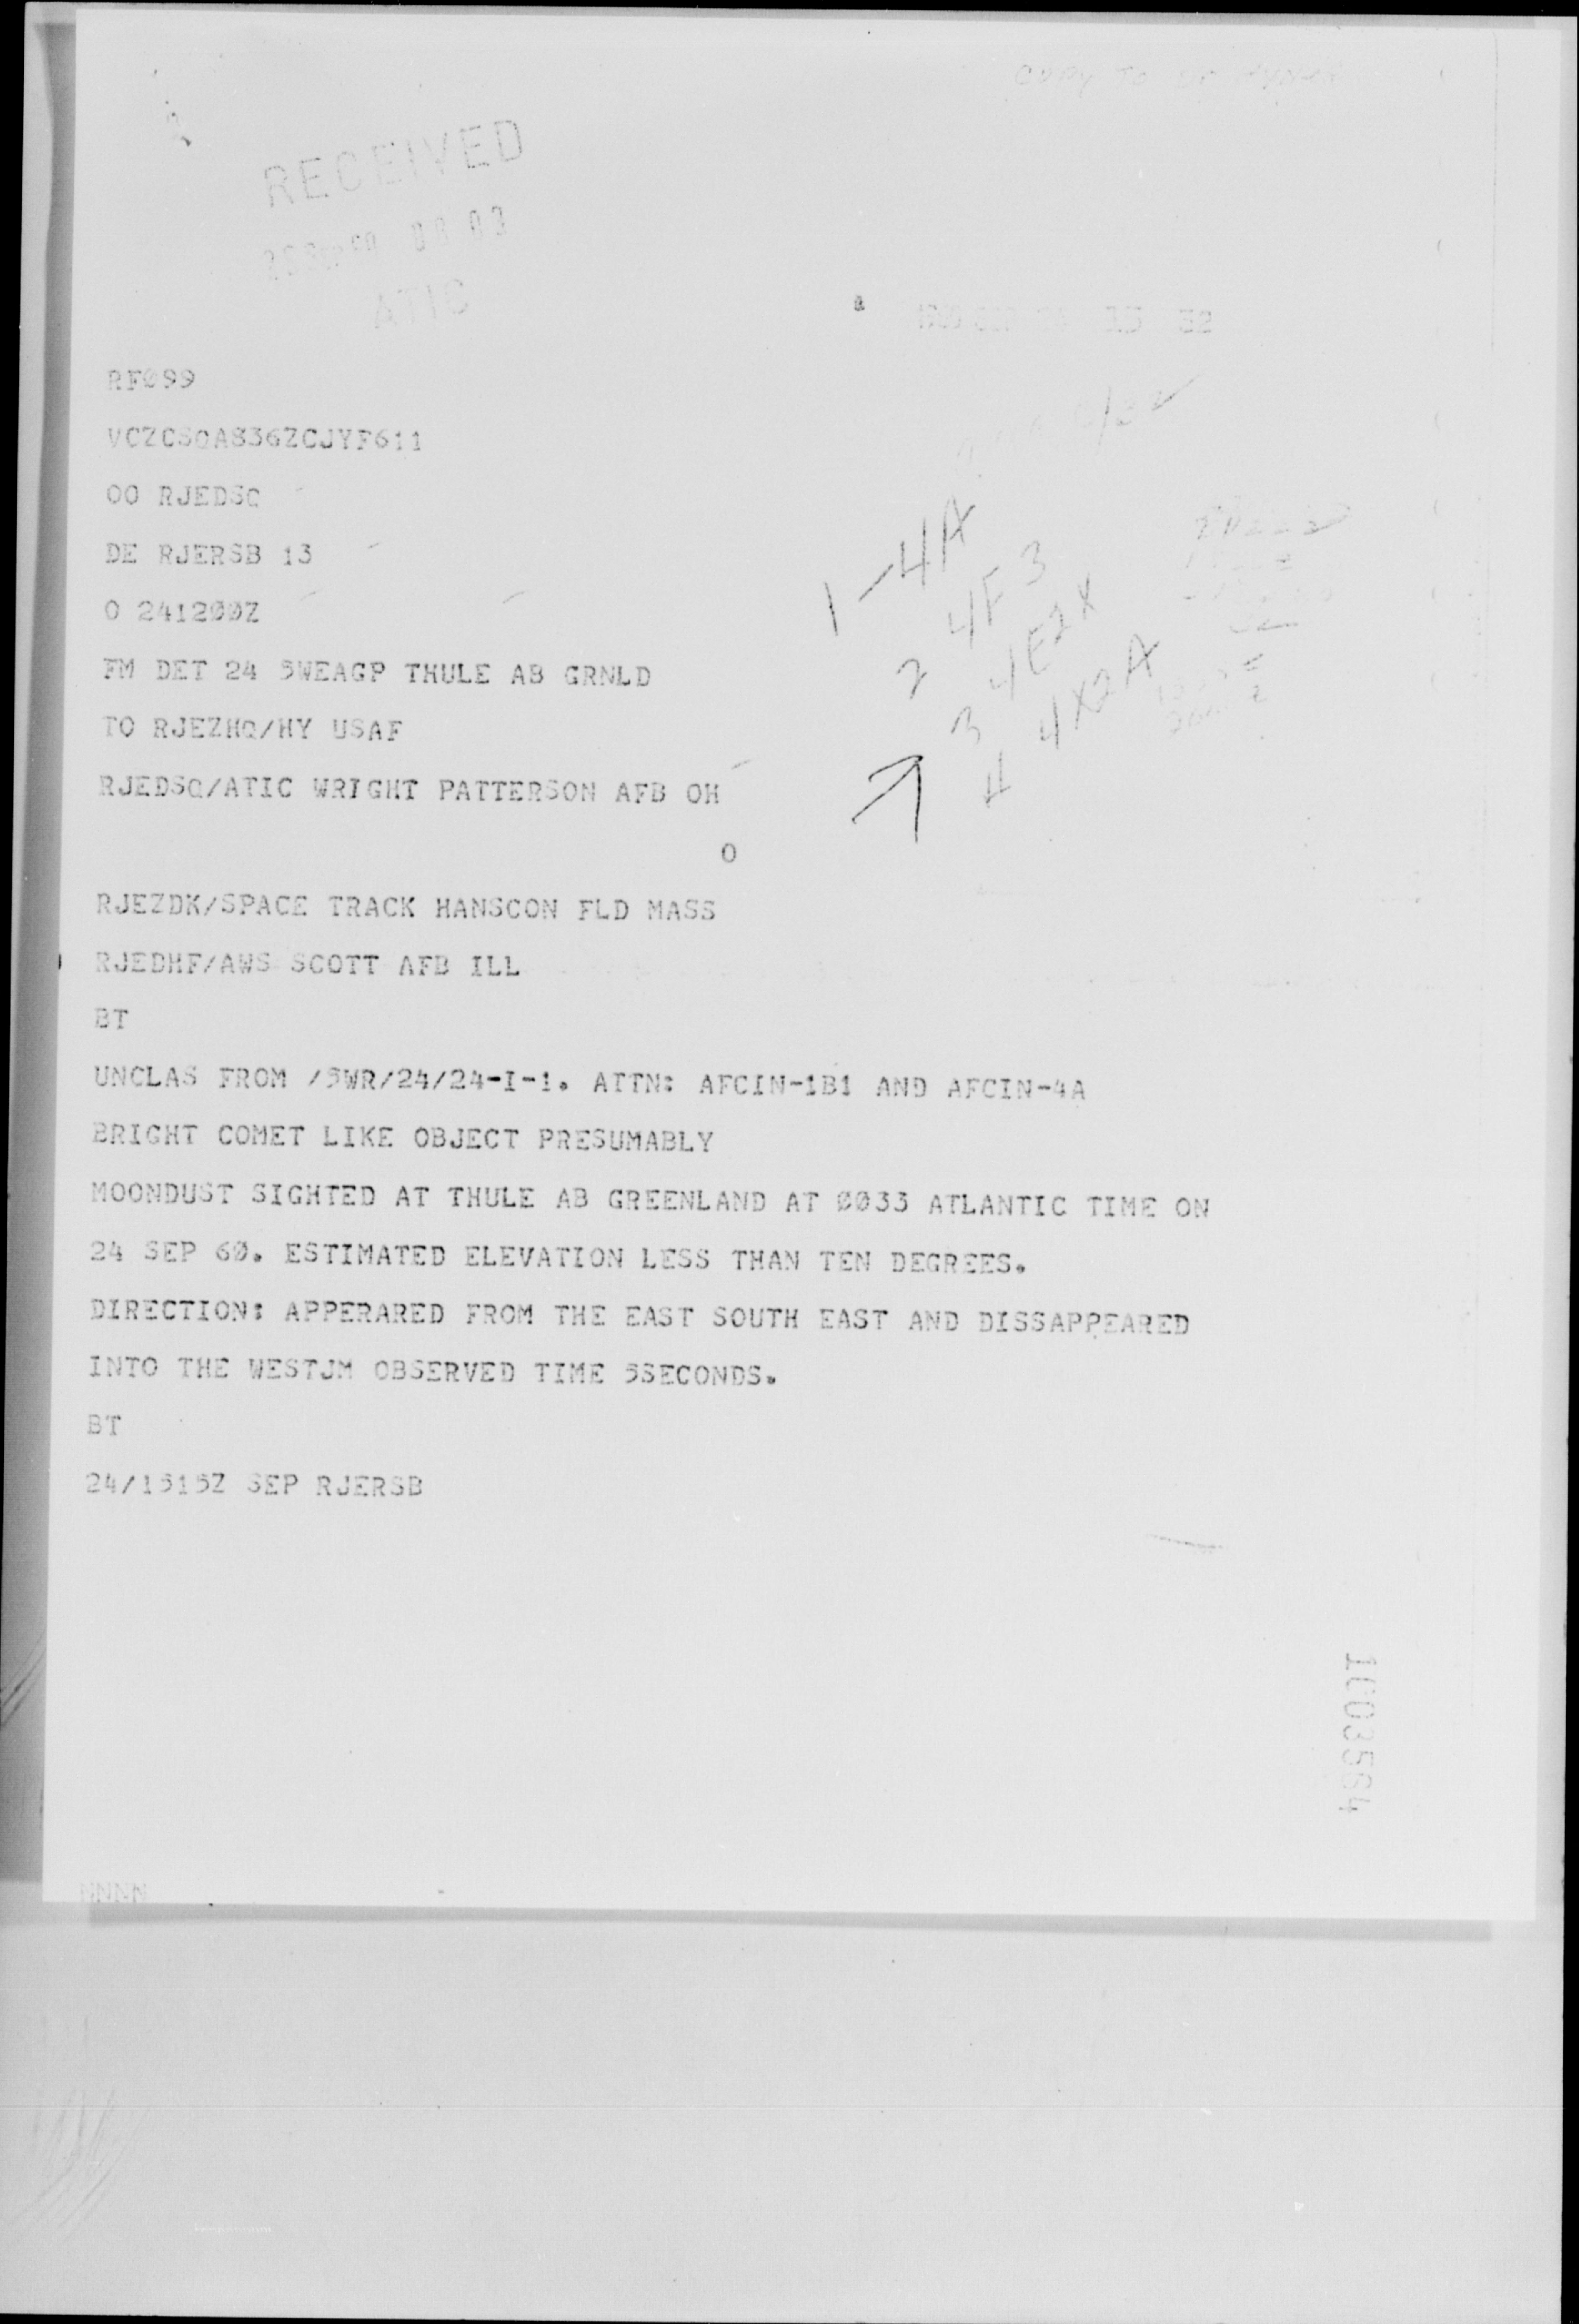 COPY TO Dr HYNEK
RECEIVED
ATIC
RF099
VCZCSQA836ZCJYF611
OO RJEDSQ
DE RJERSB 13
O 241200Z
FM DET 24 5WEAGP THULE AB GRNLD
TO RJEZHQ/HY USAF
RJEDSQ/ATIC WRIGHT PATTERSON AFB OH
O
RJEZDK/SPACE TRACK HANSCON FLD MASS
RJEDHF/AWS SCOTT AFB ILL
BT
UNCLAS FROM /5WR/24/24-I-1. ATTN: AFCIN-1B1 AND AFCIN-4A
BRIGHT COMET LIKE OBJECT PRESUMABLY
MOONDUST SIGHTED AT THULE AB GREENLAND AT 0033 ATLANTIC TIME ON
24 SEP 60. ESTIMATED ELEVATION LESS THAN TEN DEGREES.
DIRECTION: APPERARED FROM THE EAST SOUTH EAST AND DISSAPPEARED
INTO THE WESTJM OBSERVED TIME 5SECONDS.
BT
24/1515Z SEP RJERSB
1-4A
2 4F3
3 4E2X
4 4X2A
NNNN